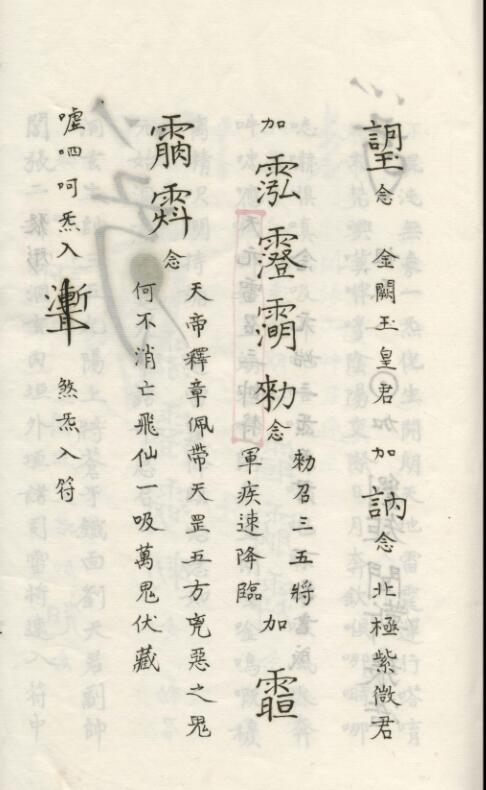 念 金闕玉皇君加加 訥 念 北極紫微君
加 泓 澄 勑 念 勑召三五將
軍疾速降臨 加
念 天帝釋章佩帶天罡五方兇惡之鬼
何不消亡飛仙一吸萬鬼伏藏
嘘呬呵炁入 煞炁入符